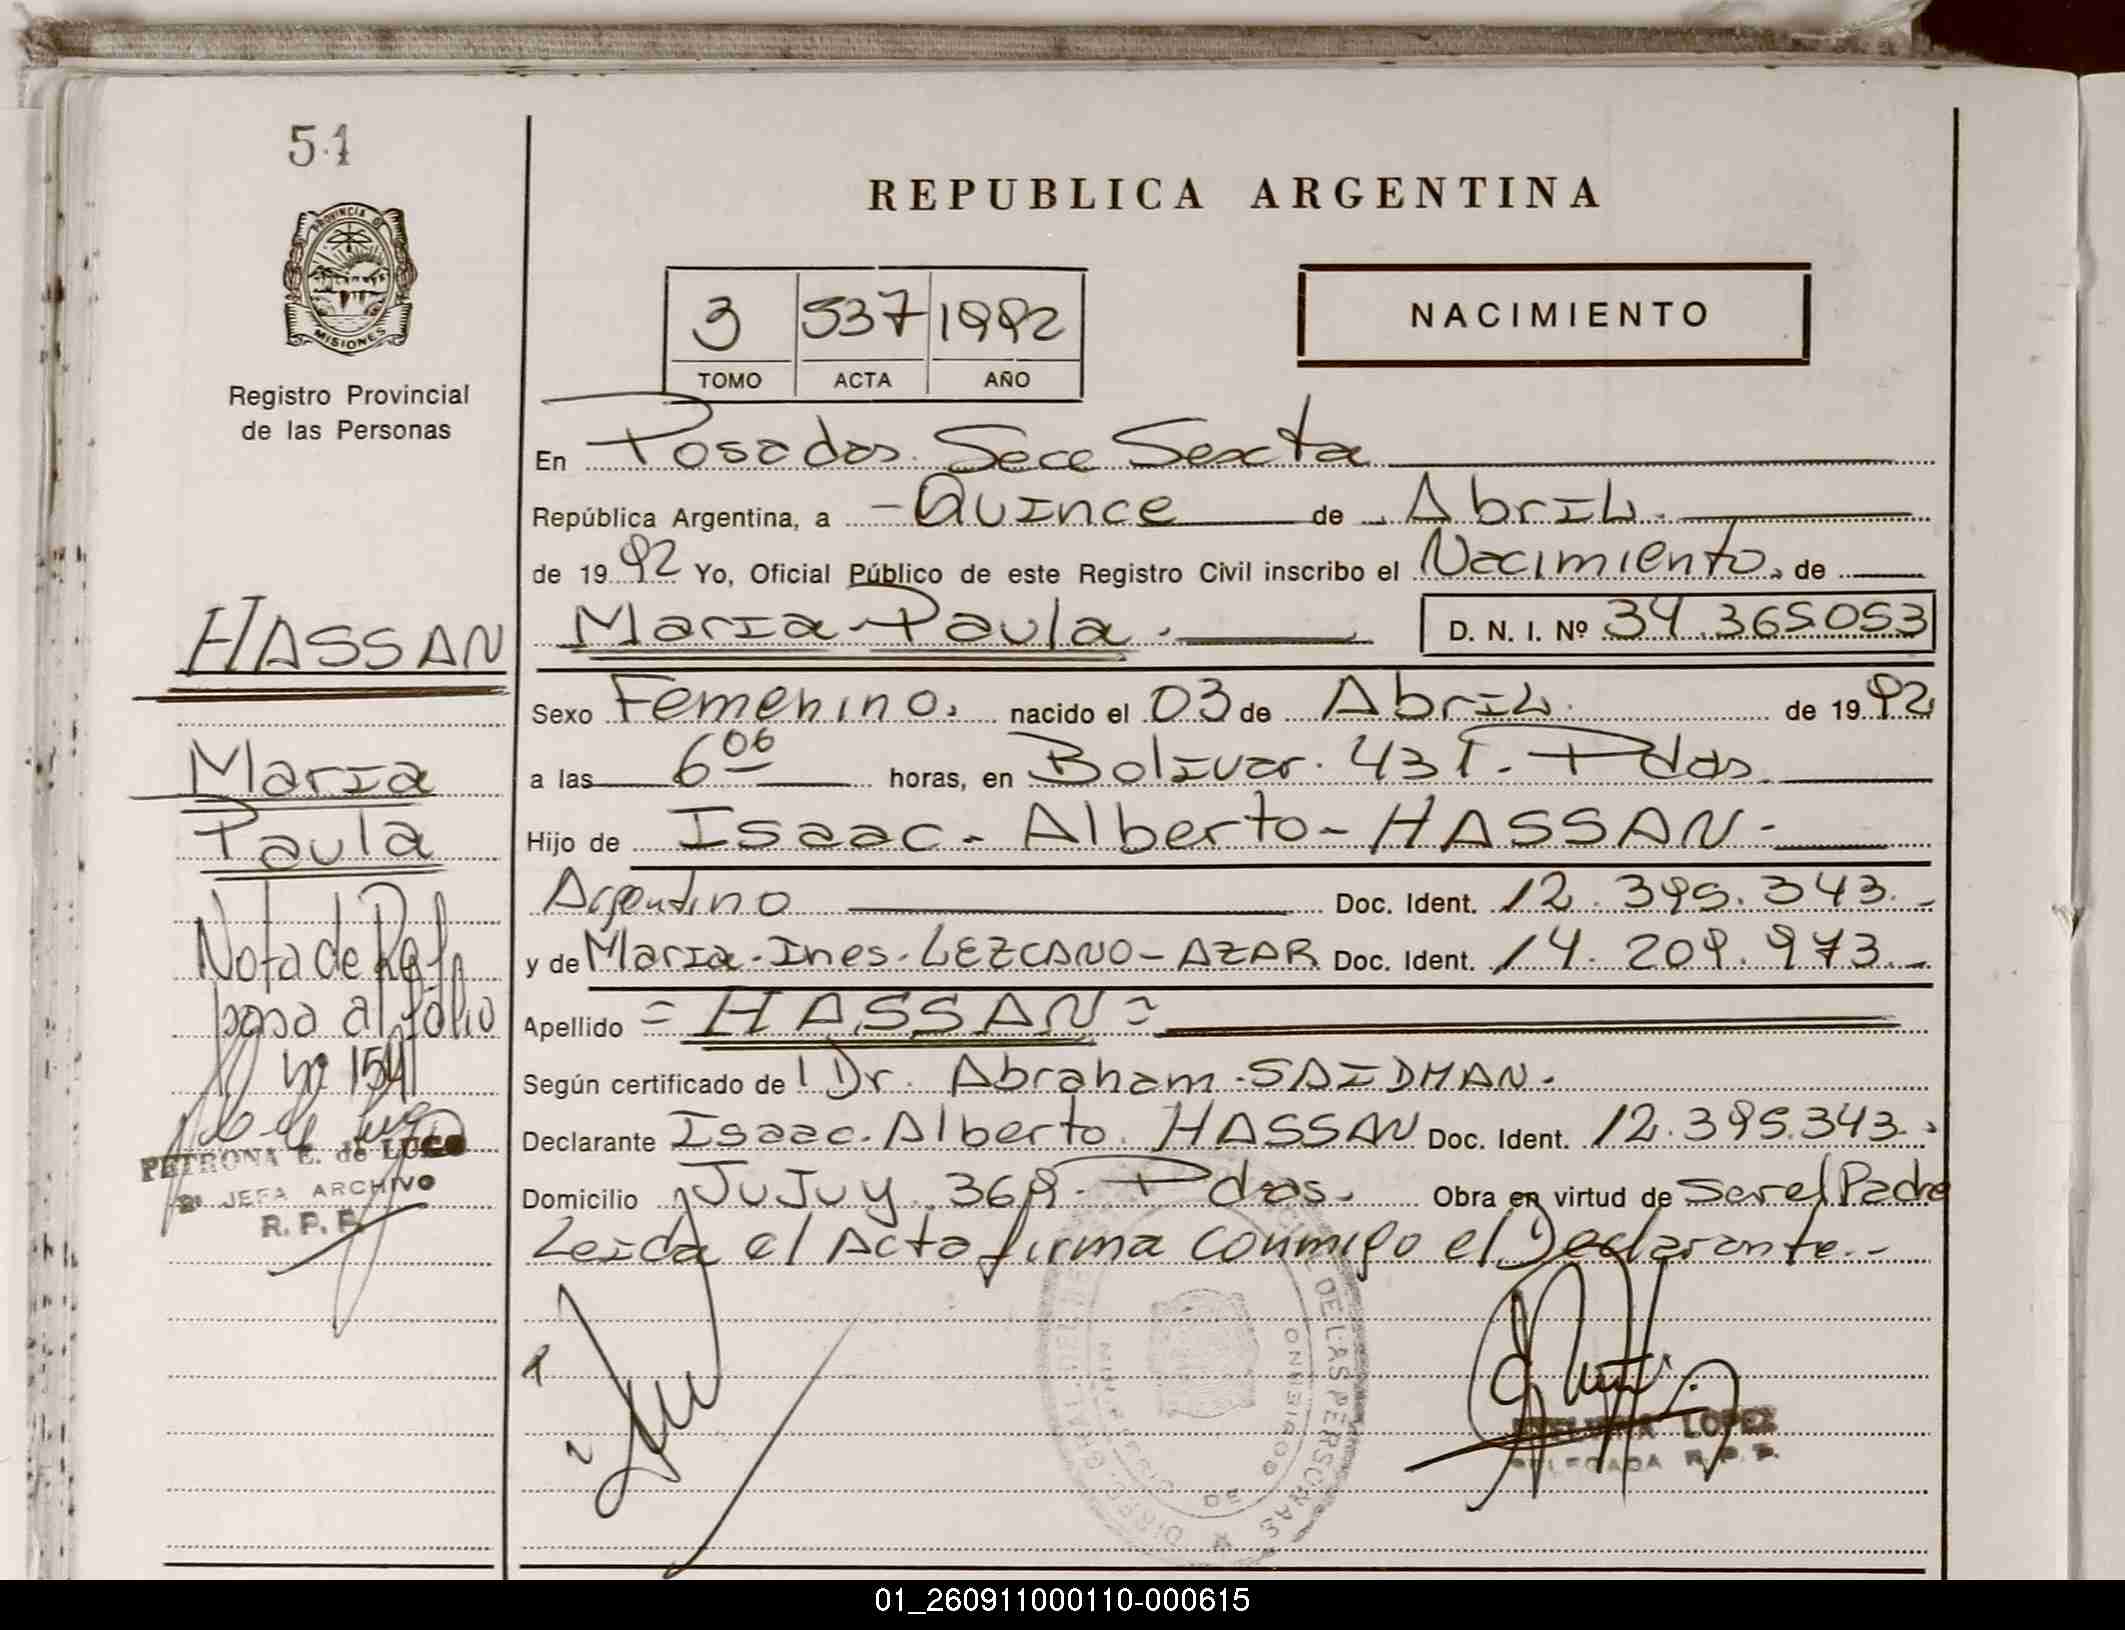 51
REPUBLICA ARGENTINA
PROVINCIA DE
MISIONES
Registro Provincial
de las Personas
3 537 1992
TOMO ACTA AÑO
NACIMIENTO
En Posadas. Secc Sexta
República Argentina, a - Quince de Abril.
de 19 92 Yo, Oficial Público de este Registro Civil inscribo el Nacimiento, de
Maria Paula. D. N. I. Nº 34.365.053
Sexo Femenino. nacido el 03 de Abril. de 19 92
a las 6 06 horas, en Bolivar. 431. Pdas.
Hijo de Isaac - Alberto - HASSAN -
Argentino Doc. Ident. 12.395.343.-
y de Maria - Ines - LEZCANO - AZAR Doc. Ident. 14.209.973.-
Apellido = HASSAN =
Según certificado de Dr. Abraham - SAIDMAN.
Declarante Isaac. Alberto. HASSAN Doc. Ident. 12.395.343.-
Domicilio JuJuy. 369. Pdas. Obra en virtud de Ser el Padre
Leida el Acta firma conmigo el Declarante.-
HASSAN
Maria
Paula
Nota de Ref.
pasa al folio
nº 154
PETRONA E. de LUGO
JEFA ARCHIVO
R. P. P.
LOPEZ
DELEGADA R. P. P.
DE LAS PERSONAS
01_260911000110-000615